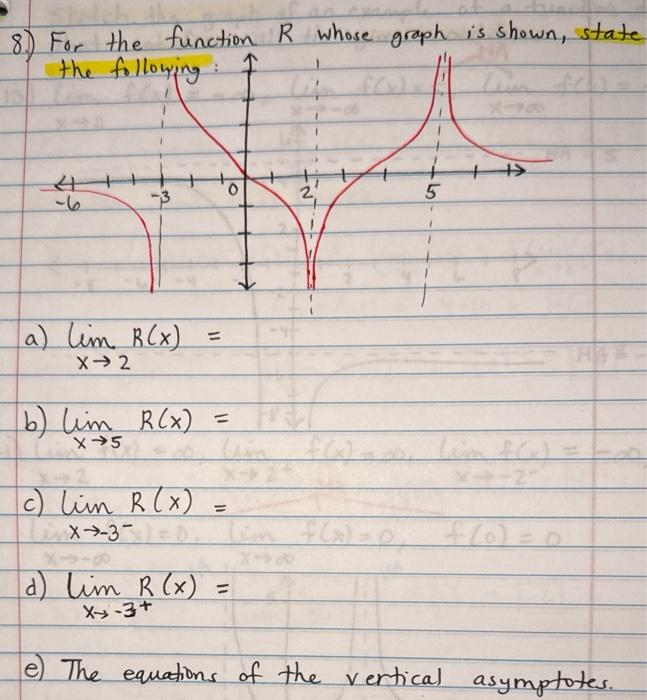 8.) For the function R whose graph is shown, state
the following:
-6 -3 0 2 5
a) lim R(x) =
x→2
b) lim R(x) =
x→5
c) lim R(x) =
x→-3⁻
d) lim R(x) =
x→-3⁺
e) The equations of the vertical asymptotes.